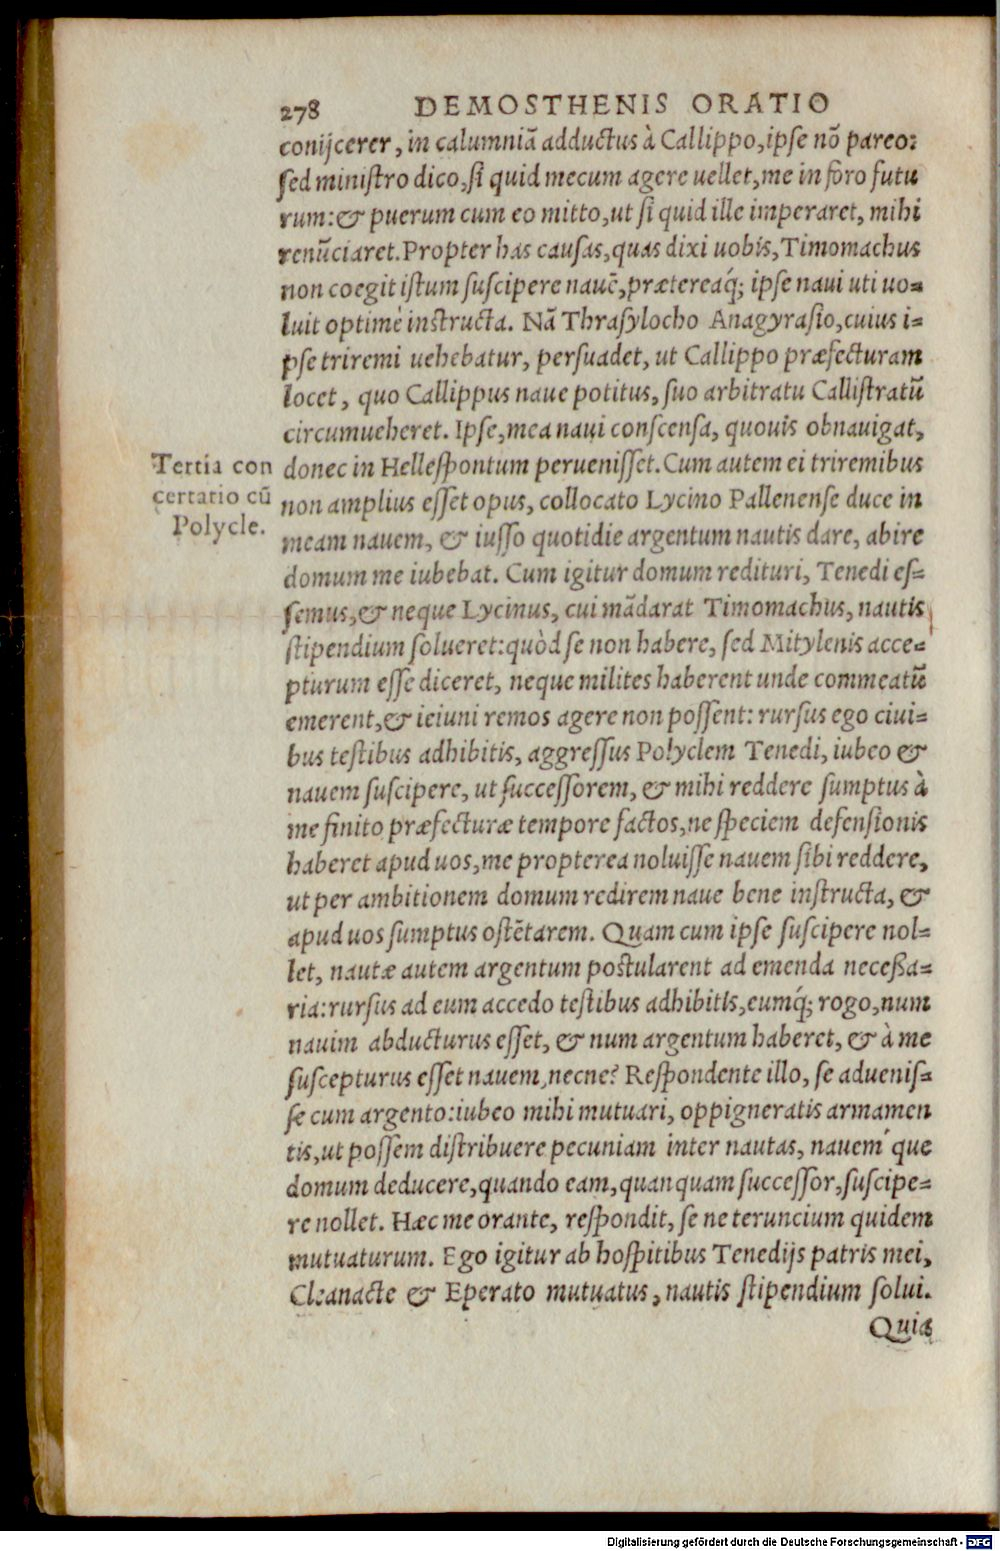 278 DEMOSTHENIS ORATIO
conijcerer, in calumniā adductus à Callippo, ipse nō pareo:
sed ministro dico, si quid mecum agere uellet, me in foro futu
rum: & puerum cum eo mitto, ut si quid ille imperaret, mihi
renūciaret. Propter has causas, quas dixi uobis, Timomachus
non coegit istum suscipere nauē, prætereaq́; ipse naui uti uo=
luit optimè instructa. Nā Thrasylocho Anagyrasio, cuius i=
pse triremi uehebatur, persuadet, ut Callippo præfecturam
locet, quo Callippus naue potitus, suo arbitratu Callistratū
circumueheret. Ipse, mea naui conscensa, quouis obnauigat,
donec in Hellespontum peruenisset. Cum autem ei triremibus
non amplius esset opus, collocato Lycino Pallenense duce in
meam nauem, & iusso quotidie argentum nautis dare, abire
domum me iubebat. Cum igitur domum redituri, Tenedi es=
semus, & neque Lycinus, cui mādarat Timomachus, nautis
stipendium solueret: quòd se non habere, sed Mitylenis acce=
pturum esse diceret, neque milites haberent unde commeatū
emerent, & ieiuni remos agere non possent: rursus ego ciui=
bus testibus adhibitis, aggressus Polyclem Tenedi, iubeo &
nauem suscipere, ut successorem, & mihi reddere sumptus à
me finito præfecturæ tempore factos, ne speciem defensionis
haberet apud uos, me propterea noluisse nauem sibi reddere,
ut per ambitionem domum redirem naue bene instructa, &
apud uos sumptus ostētarem. Quam cum ipse suscipere nol=
let, nautæ autem argentum postularent ad emenda necessa=
ria: rursus ad eum accedo testibus adhibitis, eumq́; rogo, num
nauim abducturus esset, & num argentum haberet, & à me
suscepturus esset nauem, necne? Respondente illo, se aduenis=
se cum argento: iubeo mihi mutuari, oppigneratis armamen
tis, ut possem distribuere pecuniam inter nautas, nauem´que
domum deducere, quando eam, quanquam successor, suscipe=
re nollet. Hæc me orante, respondit, se ne teruncium quidem
mutuaturum. Ego igitur ab hospitibus Tenedijs patris mei,
Cleanacte & Eperato mutuatus, nautis stipendium solui.
Quia
Tertia con
certatio cū
Polycle.
Digitalisierung gefördert durch die Deutsche Forschungsgemeinschaft - DFG